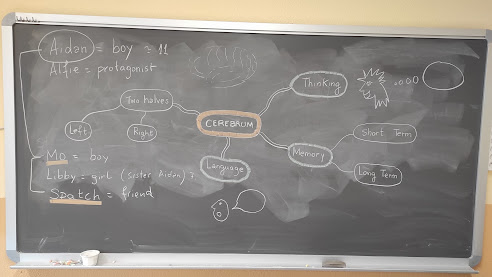 Aidan = boy ≈ 11
Alfie = protagonist
Thinking
Two halves
CEREBRUM
Left
Right
Short Term
Memory
Mo = boy
Language
Long Term
Libby = girl (sister Aidan)?
Spatch = friend